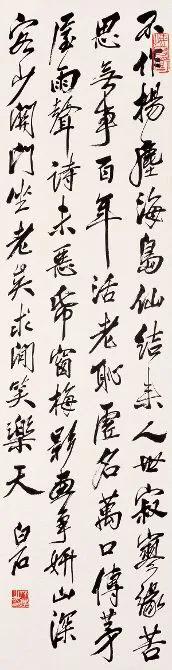 不作揚塵海島仙結來人世寂寥緣苦
思無事百年活老恥虛名萬口傳茅
屋雨聲詩未惡帋窗梅影畫爭妍山深
客少關門坐老矣求閒笑樂天
白石